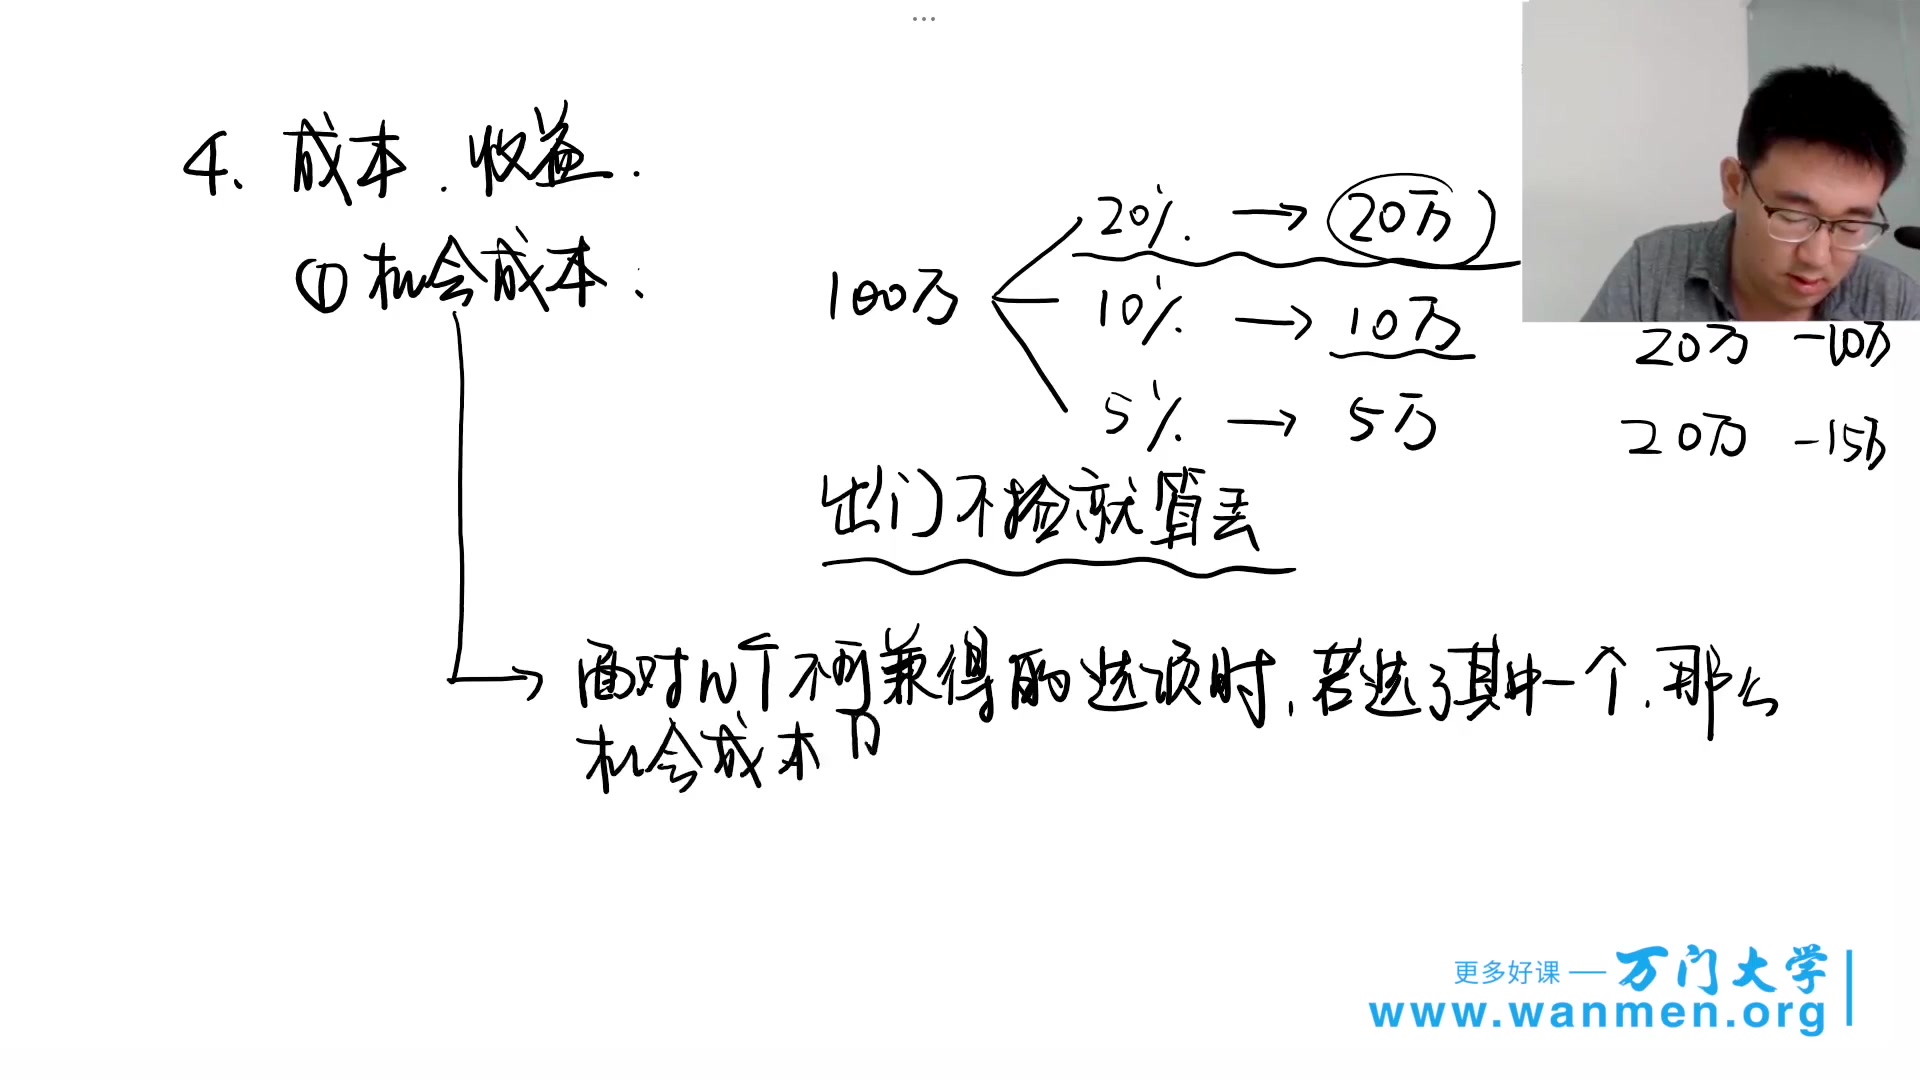 4、成本.收益.
①机会成本:
100万
20% → 20万
10% → 10万
5% → 5万
20万 -10万
20万 -15万
出门不捡就算丢
→ 面对N个不可兼得的选项时,若选了其中一个,那么
机会成本
更多好课 — 万门大学
www.wanmen.org